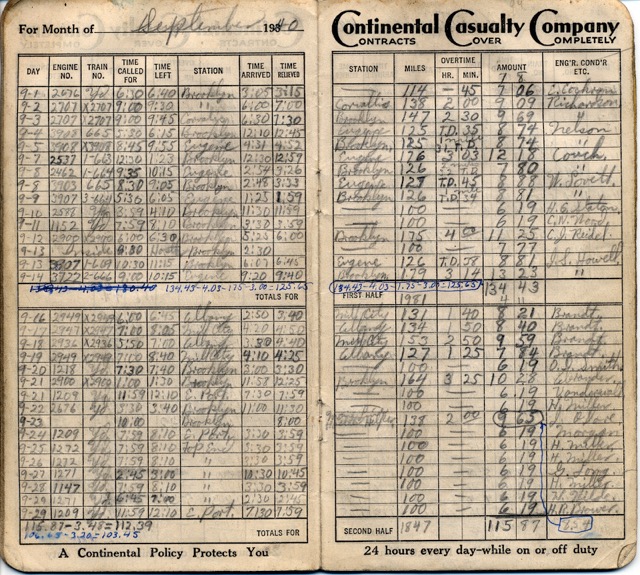 For Month of September 1940
Continental Casualty Company
CONTRACTS COVER COMPLETELY
DAY ENGINE NO. TRAIN NO. TIME CALLED FOR TIME LEFT STATION TIME ARRIVED TIME RELIEVED
STATION MILES OVERTIME HR. MIN. AMOUNT ENG'R. COND'R ETC.
9-1 2676 Yd 6:30 6:40 Brooklyn 3:05 3:15
9-2 2707 X2707 9:00 9:30 " 6:00 7:00
9-3 2707 X2707 9:00 9:45 Corvallis 6:30 7:30
9-4 3908 665 5:30 6:15 Brooklyn 12:10 12:45
9-5 3908 X3908 8:45 9:55 Eugene 4:31 4:52
9-7 2537 1-663 12:30 1:23 Brooklyn 12:30 12:59
9-8 2462 1-664 9:35 10:15 Eugene 2:54 3:26
9-8 3903 665 8:30 9:05 Brooklyn 2:48 3:33
9-9 3907 5:30 6:05 Eugene 1:25 1:59
9-10 2578 Yd 3:59 4:10 Brooklyn 11:30 11:59
9-11 1152 Yd 7:59 8:10 Brooklyn 3:30 3:59
9-12 2900 6:30 Brooklyn 5:25 6:00
9-13 Brooklyn 2:30
9-13 1-669 10:30 11:15 Brooklyn 6:10 6:45
9-14 3722 2-666 9:00 10:15 Eugene 9:20 9:40
134.43-4.03-1.75-3.00=125.65
TOTALS FOR
114 — 45 7 06 E. Cochran
Corvallis 138 2 00 9 09 Richardson
Brooklyn 147 2 30 9 69 "
Eugene 125 T.D. 35 8 74 Nelson
Brooklyn 125 8 74 "
Eugene 176 3 03 12 18 Couch
Brooklyn 126 7 80 "
Eugene 127 T.D. 45 8 88 W. Lovett
Brooklyn 126 T.D. 34 8 81 "
100 — — 6 19 H.G. Eaton
100 — — 6 19 C.N. Wood
Brooklyn 175 4 00 11 25 C.J. Riedel
100 — — 7 77
Eugene 126 T.D. 58 8 81 J.S. Howell
Brooklyn 179 3 14 13 23 "
(134.43-4.03-1.75-3.00=125.65) 134 43
FIRST HALF 1981
9-16 2949 X2949 6:00 6:45 Albany 2:50 3:40
9-17 2947 X2947 7:00 8:05 Mill City 4:20 4:50
9-18 2936 X2936 5:50 7:00 Albany 3:30 4:40
9-19 2949 X2949 7:00 8:40 Mill City 4:10 4:25
9-20 1218 Yd 7:30 7:40 Brooklyn 3:00 3:30
9-21 2900 X2900 1:00 1:30 Brooklyn 11:57 12:25
9-21 1209 Yd 11:59 12:10 E. Port. 7:30 7:59
9-22 2676 Yd 3:30 3:40 Brooklyn 11:00 11:30
9-23 10:00 Brooklyn 8:00
9-24 1209 Yd 7:59 8:10 E. Port. 3:30 3:59
9-25 1272 Yd 7:59 8:10 3:30 3:59
9-26 1272 Yd 7:59 8:10 " 3:30 3:59
9-27 1271 Yd 2:45 3:00 " 10:30 10:45
9-28 1147 Yd 7:59 8:10 " 3:30 3:59
9-29 1271 Yd 6:45 7:00 " 2:30 2:45
9-29 1209 Yd 11:59 12:10 E. Port. 7:30 7:59
115.87-3.48=112.39
106.65-3.20=103.45
TOTALS FOR
Mill City 131 1 40 8 21 Brandt
Albany 134 1 50 8 40 Brandt
Mill City 153 2 50 9 59 Brandt
Albany 127 1 25 7 84 Brandt
100 — — 6 19 O.L. Smith
Brooklyn 164 3 25 10 28
100 — — 6 19
100 — — 6 19 H. Miller
138 2 00 9 65
100 — — 6 19 Morgan
100 — — 6 19 H. Miller
100 — — 6 19 H. Miller
100 — — 6 19 G. Long
100 — — 6 19 H. Miller
100 — — 6 19 H. Wilder
100 — — 6 19 H.R. Brower
SECOND HALF 1847 115 87
A Continental Policy Protects You
24 hours every day—while on or off duty